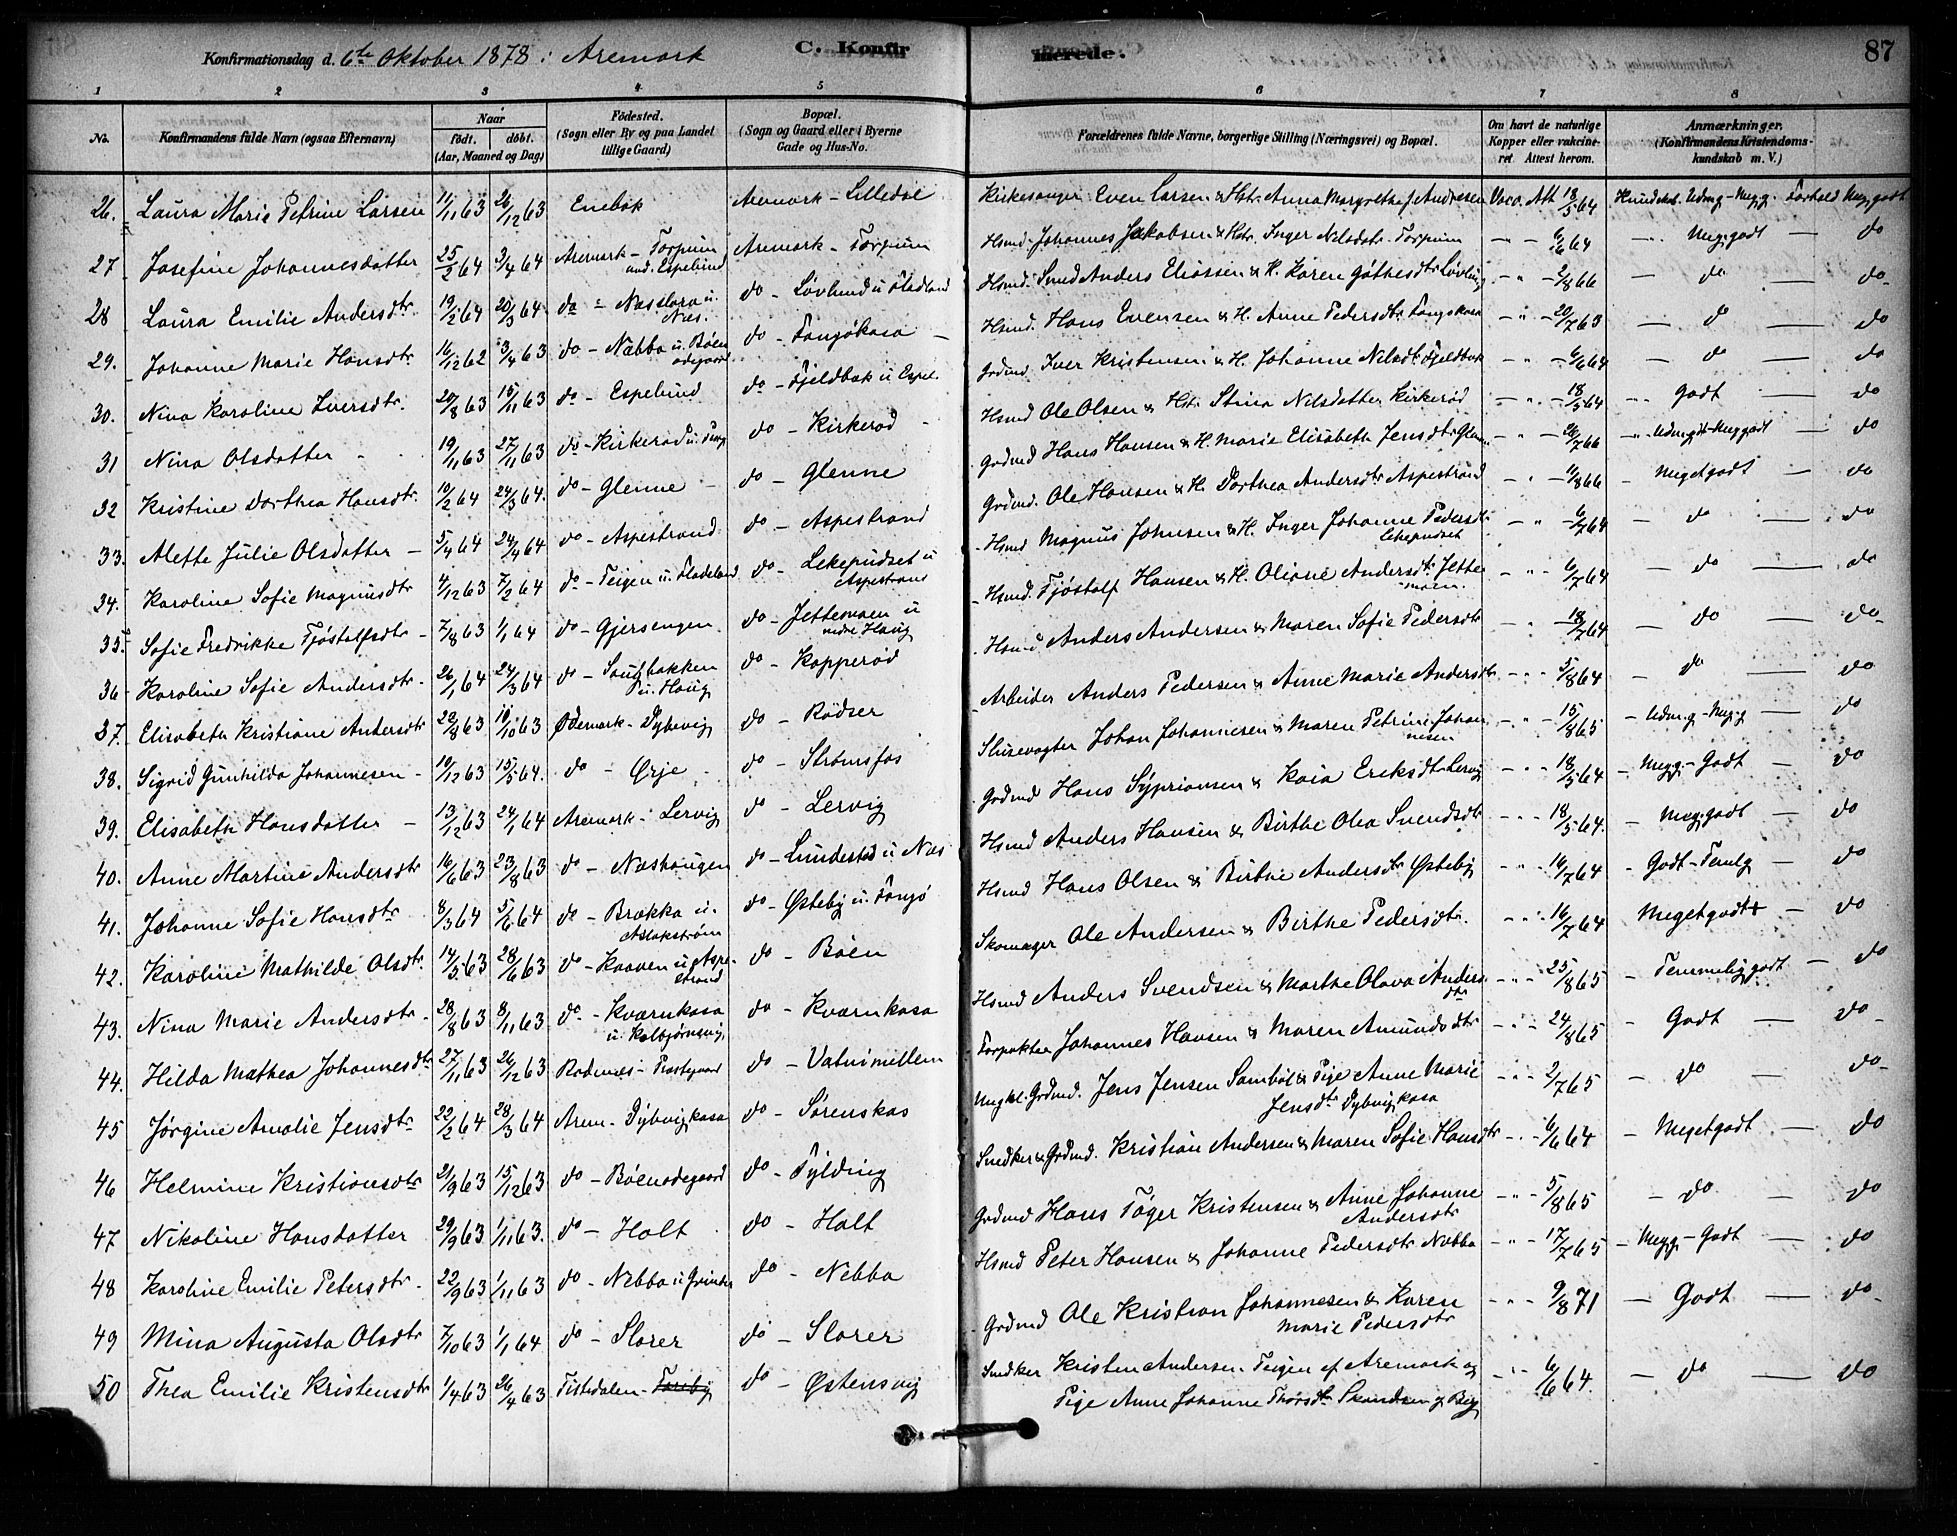 Konfirmationsdag d. 6te Oktober 1878 i Aremark C. Konfirmerede. 87
1 2 3 4 5 6 7 8
No. Konfirmandens fulde Navn (ogsaa Efternavn) Naar født. døbt. (Aar, Maaned og Dag) Fødested. (Sogn eller By og paa Landet tillige Gaard) Bopæl. (Sogn og Gaard eller i Byerne Gade og Hus-No. Forældrenes fulde Navne, borgerlige Stilling (Næringsvei) og Bopæl. Om havt de naturlige Kopper eller vakcineret. Attest herom. Anmærkninger. (Konfirmandens Kristendomskundskab m. V.)
26. Laura Marie Petrine Larsen 11/11 63 26/12 63 Enebak Aremark - Lilledal Kirkesanger Even Larsen & Hstr. Anna Margrethe f. Andresen Vacc. Att 18/5 64 Kundskab. Udmg - Meg. g. Forhold Meg. godt
27 Josefine Johannesdatter 25/2 64 3/4 64 Aremark - Torpum und. Espelund Aremark - Torpum Hsmd. Johannes Jakobsen & Hstr. Inger Nilsdatr. Torpum - " - 6/6 64 - " Meg. godt - do
28 Laura Emilie Andersdtr. 19/2 64 20/3 64 do - Næsslora u. Næs. do - Løvlund u Fladland Hsmd. Smed Anders Eliassen & H. Karen Gøthesdtr Løvlund - " - 2/8 66 - do - do
29. Johanne Marie Hansdtr 16/12 62 3/4 63 do - Næbba u. Bøen ødegaard do - Tangøkasa - Hsmd. Hans Evensen & H. Anne Pedersdtr. Tangskasa - " - 20/7 63 - do - do
30. Nina Karoline Iversdtr. 20/8 63 15/11 63 do - Espelund do - Fjeldbak u Espel. Grdmd. Iver Kristensen & H. Johanne Nilsdtr. Fjeldbak - " - 6/6 64 - do - do
31 Nina Olsdatter 19/11 63 27/11 63 do - Kirkerød u. Tang do - Kirkerød - Hsmd Ole Olsen & Hstr. Stina Nilsdatter Kirkerød - " - 18/5 64 - " Godt - do
32 Kristine Dorthea Hansdtr. 10/2 64 24/3 64. do - Glenne - do - Glenne Grdmd Hans Hansen & H. Marie Elisabeth Jensdtr Glenne - " - 26/7 66 - " Udmgdt - Meg godt - do
33. Alette Julie Olsdatter - 5/4 64 24/4 64 do - Aspestrand do - Aspestrand Grdmd. Ole Hansen & H. Dorthea Andersdtr Aspestrand - " - 11/8 66 - Meget godt - do
34. Karoline Sofie Magnusdtr 4/12 63 7/2 64 do - Teigen u. Fladeland do - Lekepudset u Aspestrand Hsmd Magnus Johnsen & H. Inger Johanne Pedersdtr Lekepudset - " - 6/7 64 - do - do
35. Sofie Fredrikke Tjøstolfsdtr - 7/8 63 1/1 64 do - Gjersengen do - Jettemoen u nedre Haug Hsmd. Tjøstolf Hansen & H. Oliane Andersdtr. Jettemoen - " - 6/7 64 - do - do
36 Karoline Sofie Andersdtr. 26/1 64 24/3 64 do - Saugbakken u. Haug do - Kopperød Hsmd Anders Andersen & Maren Sofie Pedersdtr - " - 18/7 64 - do - do
37. Elisabeth Kristiane Andersdtr 20/8 63 18/10 63 Ødemark - Dybevig do - Rødser Arbeider Anders Pedersen & Anne Marie Andersdtr - " - 5/8 64 - do - do
38. Sigrid Gunhilda Johannesen - 19/12 63 15/5 64. do - Ørje - do - Strømsfos Slusevogter Johan Johannesen & Maren Petrine Johannesen - " - 15/8 65 - Udm. g - Meg. g - do
39. Elisabeth Hansdatter - 13/12 63 24/1 64 Aremark - Lervig do - Lervig Grdmd Hans Syprionsen & Kaia Eriksdtr. Lervig - " - 18/5 64 - Megg. - Godt - do
40. Anne Martine Andersdtr 16/6 63 23/8 63 do - Næshaugen do - Lundestad u Næs Hsmd Anders Hansen & Birthe Olea Svendsdtr - " - 18/5 64. - Meg. godt - do
41. Johanne Sofie Hansdtr 8/3 64 5/6 64 do - Brækka u. Aslakstrøm do - Østeby u. Tangø Hsmd Hans Olsen & Birthe Andersdtr Østeby - " - 16/7 64 - Godt - Temlg - do
42. Karoline Mathilde Olsdtr. 14/5 63 28/6 63 do - Kraaven u Aspestrand do - Bøen Skomager Ole Andersen & Birthe Pedersdtr. - " - 16/7 64 Megetgodt - do
43. Nina Marie Andersdtr. 28/8 63 8/11 63 do - Kværnkasa u. Kolbjørnsvig do - Kværnkasa Hsmd Anders Svendsen & Marthe Olava Andersdtr - " - 25/8 65 - Temmelig godt - do
44. Hilda Mathea Johannesdtr 27/11 63 26/12 63 Rødenes - Prestgaard do - Vatnimellem Forpakter Johannes Hansen & Maren Amundsdtr - " - 24/8 65 - Godt - do
45 Jørgine Amalie Jensdtr 22/2 64 28/3 64 Arem - Dybvigkasa do - Sørenskas Ungkl. Grdmd. Jens Jensen Sambøl & Pige Anne Marie Jensdtr Dybvigkasa - " - 2/7 65 - do - do
46 Helmine Kristiansdtr 21/9 63 15/12 63 do - Bøenødegaard do - Fylding Snedker & Grdmd. Kristian Andersen & Maren Sofie Hansdtr - " - 6/6 64 - Megetgodt - do
47 Nikoline Hansdatter 29/9 63 1/11 63. do - Holt do - Holt Grdmd Hans Tøger Kristensen & Anne Johanne Andersdtr - " - 5/8 65 - do - do
48 Karoline Emilie Petersdtr. 22/9 63 1/11 63 do - Nebba u Grimsø do - Nebba Hsmd Peter Hansen & Johanne Pedersdtr Nebba - " - 17/7 65 - Megg - Godt - do
49 Mina Augusta Olsdtr 7/10 63 1/1 64 do - Slorer do - Slorer Grdmd Ole Kristian Johannesen & Karen Marie Pedersdtr - " - 9/8 71 - Godt - do
50 Thea Emilie Kristensdtr 1/4 63 26/4 63 Tistedalen - do - Østensvig Snedker Kristen Andersen Teigen af Aremark og " - 6/6 64. - do - do
Pige Anne Johanne Thorsdtr